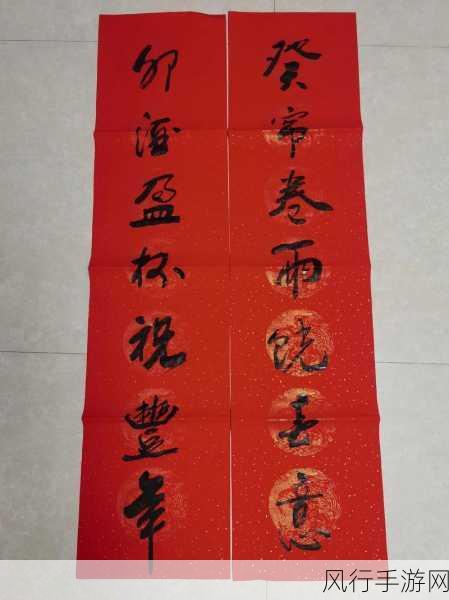 癸帘卷雨饶春意
卯酒盈杯祝豐年
风行手游网